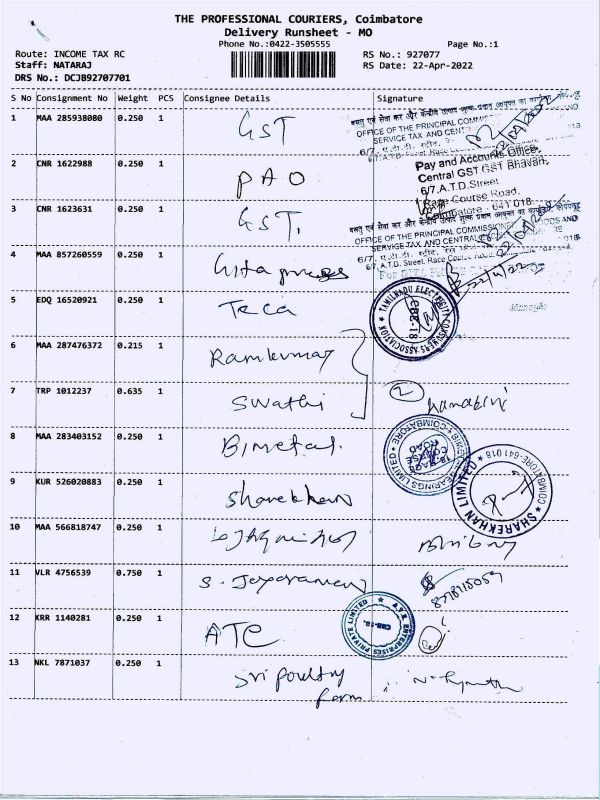 THE PROFESSIONAL COURIERS, Coimbatore
Delivery Runsheet - MO
Phone No.:0422-3505555
Page No.:1
Route: INCOME TAX RC
RS No.: 927077
Staff: NATARAJ
RS Date: 22-Apr-2022
DRS No.: DCJB92707701
S No Consignment No Weight PCS Consignee Details Signature
1 MAA 285938080 0.250 1 GST
OFFICE OF THE PRINCIPAL
SERVICE TAX AND
2 CNR 1622988 0.250 1 PAO
Pay and Accounts Office,
Central GST GST Bhavan,
6/7, A.T.D. Street,
Race Course Road,
Coimbatore - 641 018.
3 CNR 1623631 0.250 1 GST.
वस्तु एवं सेवा कर और केन्द्रीय उत्पाद शुल्क प्रधान आयुक्त का कार्यालय
OFFICE OF THE PRINCIPAL COMMISSIONER GOODS AND
SERVICE TAX AND CENTRAL
6/7, A.T.D. Street, Race Course
4 MAA 857260559 0.250 1 Gita
22/4/22
5 EDQ 16520921 0.250 1 Teca
TAMILNADU ELECTRICITY CONSUMERS ASSOCIATION
CBE-18
6 MAA 287476372 0.215 1 Ramkumar
7 TRP 1012237 0.635 1 Swathi
2
8 MAA 283403152 0.250 1 Bimetal.
BEARINGS LIMITED COIMBATORE
18, RACE COURSE ROAD
9 KUR 526020883 0.250 1 Sharekhan
SHAREKHAN LIMITED COIMBATORE-641 018
10 MAA 566818747 0.250 1
11 VLR 4756539 0.750 1 S. Jeyaraman
12 KRR 1140281 0.250 1 ATC
ENTERPRISES PRIVATE LIMITED
CBE-18.
13 NKL 7871037 0.250 1 Sri Poultry
farm